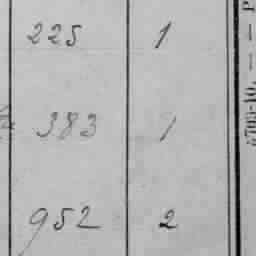 225 1
383 1
952 2